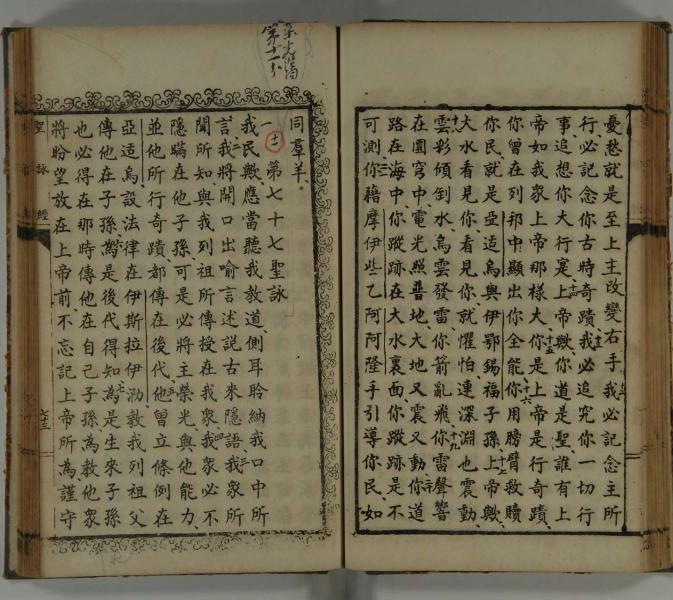 憂愁就是至上主改變右手我必記念主所
行必記念你古時奇蹟我必追究你一切行
事追想你大行寔上帝歟你道是聖誰有上
帝如我衆上帝那樣大你是上帝是行奇蹟
你曾在列邦中顯出你全能你用膀臂救贖
你民就是亞适烏與伊鄂錫福子孫上帝歟
大水看見你看見你就懼怕連深淵也震動
雲彩傾倒水烏雲發雷你箭亂飛你雷聲響
在圜穹中電光照普地大地又震又動你道
路在海中你蹤跡在大水裏面你蹤跡是不
可測你藉摩伊些乙阿阿隆手引導你民如
同羣羊
第七十七聖詠
我民歟應當聽我教道側耳聆納我口中所
言我將開口出喻言述説古來隱語我衆所
聞所知與我列祖所傳授在我衆我衆必不
隱瞞在他子孫可是必將主榮光與他能力
並他所行奇蹟都傳在後代他曾立條例在
亞适烏設法律在伊斯拉伊泐敎我列祖父
傳他在子孫爲是後代得知為是生來子孫
也必得在那時傳他在自己子孫為教他衆
將盼望放在上帝前不忘記上帝所為謹守
聖詠經
七十三